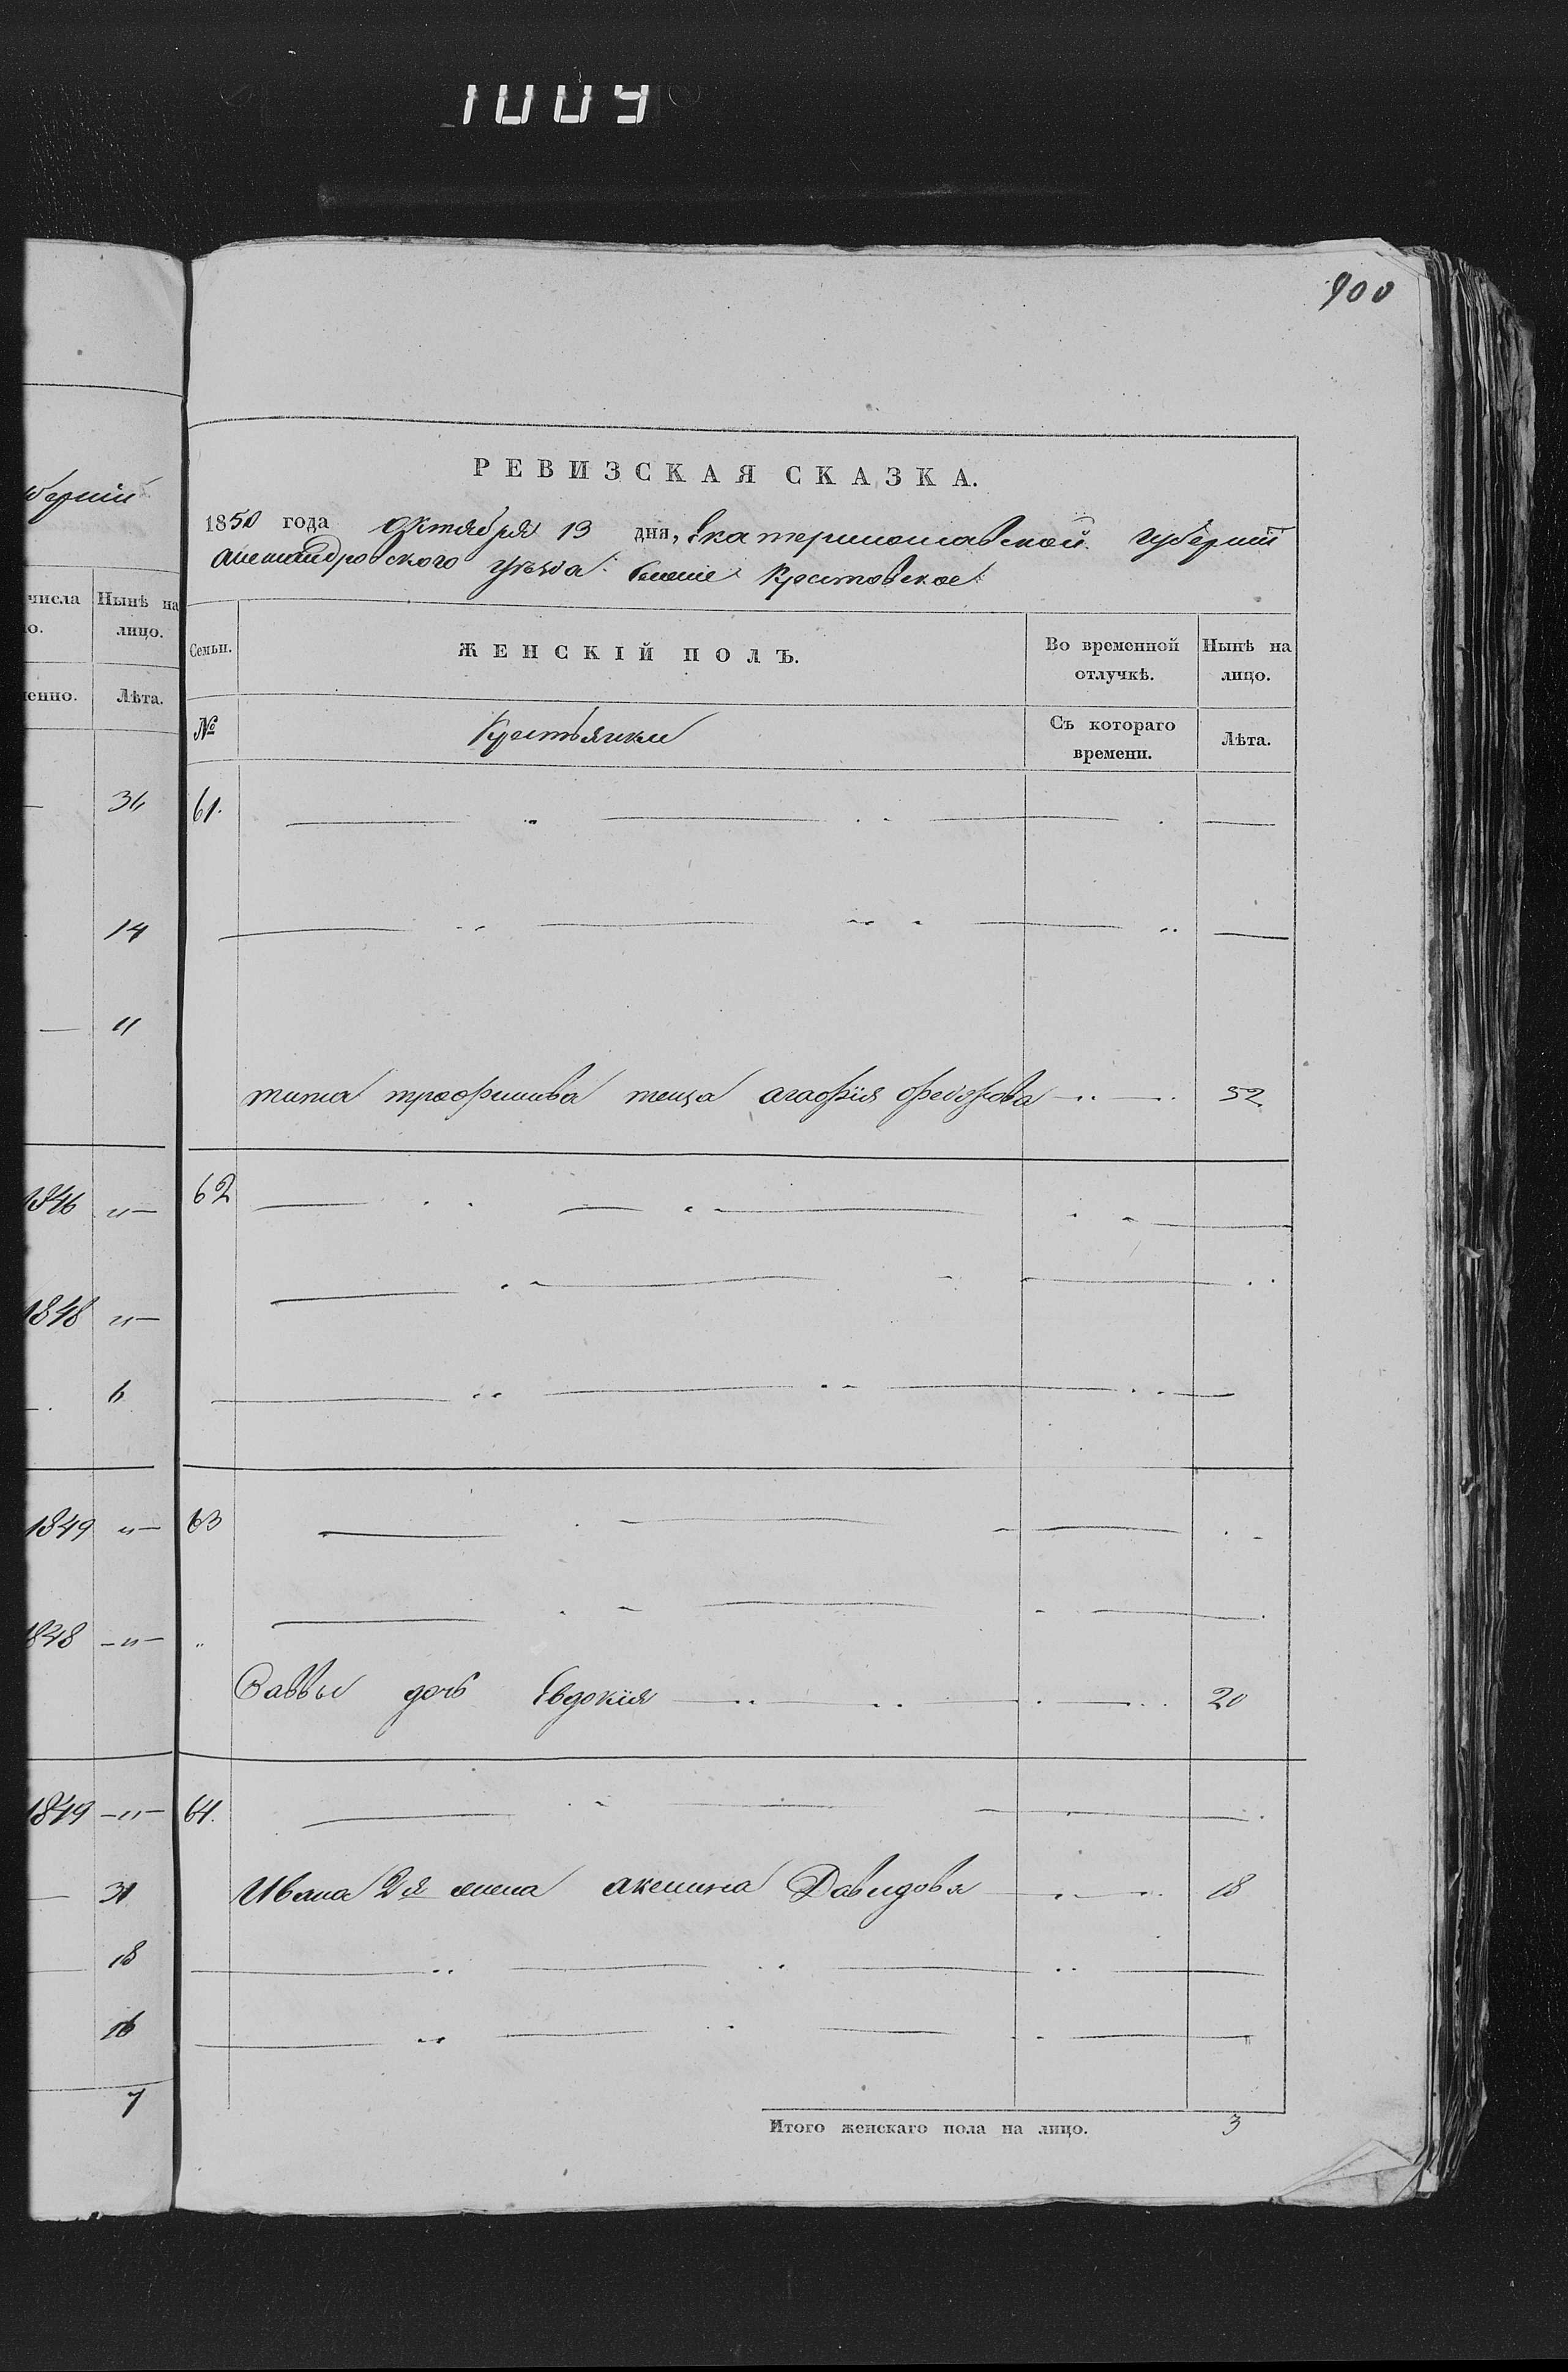 1009
900
РЕВИЗСКАЯ СКАЗКА.
1850 года Октября 13 дня, Екатеринославской губернии
Александровского уѣзда Крестовское
Семьи. ЖЕНСКІЙ ПОЛЪ. Во временной отлучкѣ. Нынѣ на лицо.
№ Крестьянки Съ котораго времени. Лѣта.
числа Нынѣ на лицо.
Лѣта.
61.
14
11
Тита Трофимова теща Агафія Федорова 52
1846 62
1848
6
1849 63
1848
Саввы дочь Евдокія 20
1849 64.
Ивана 2я жена Аксинья Давидова 18
18
16
7
Итого женскаго пола на лицо. 3